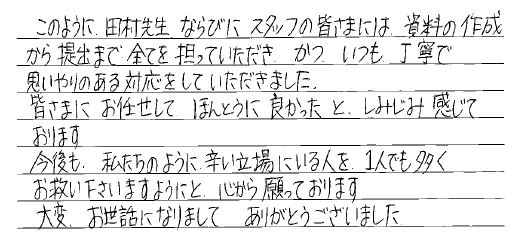 このように 田村先生 ならびに スタッフの皆さまには 資料の作成
から提出まで全てを担っていただき かつ いつも 丁寧で
思いやりのある対応をしていただきました.
皆さまに お任せして ほんとうに良かったと、しみじみ感じて
おります
今後も、私たちのように 辛い立場にいる人を 1人でも多く
お救い下さいますようにと、心から願っております
大変、お世話になりまして ありがとうございました